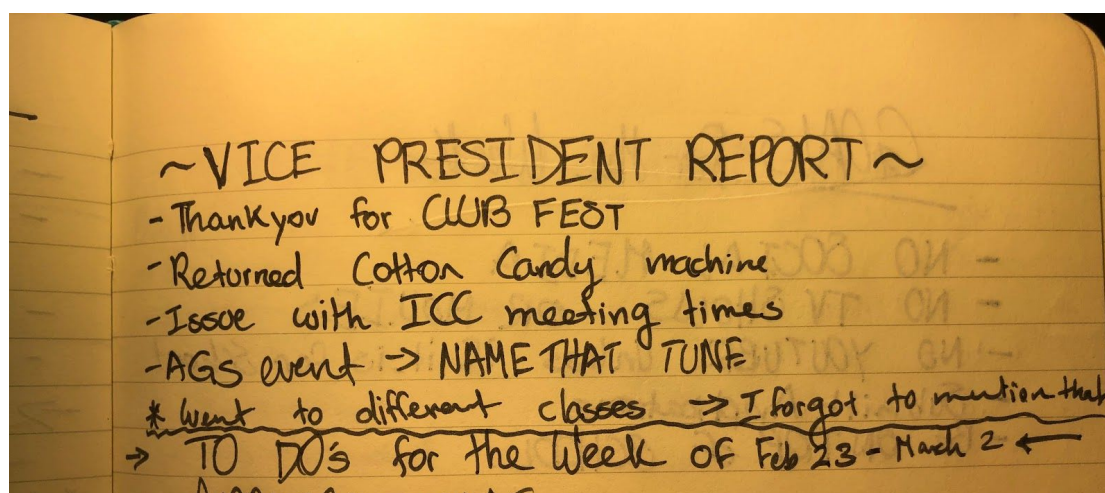 ~VICE PRESIDENT REPORT~
- Thankyou for CLUB FEST
- Returned Cotton Candy machine
- Issue with ICC meeting times
- AGS event → NAME THAT TUNE
* Went to different classes → I forgot to mention that
→ TO DO's for the Week OF Feb 23 - March 2 ←